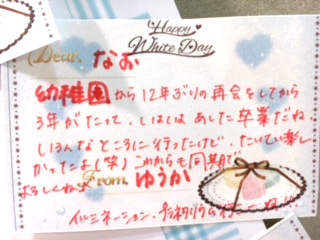 Happy
White Day
Dear. なお
幼稚園から12年ぶりの再会をしてから
3年がたって、しほしほあした卒業だね。
いろんなところに行ったけど、たいてい楽し
かったよ(笑)これからも同期で
よろしくね。
From. ゆうか
イルミネーション、行こーね!!